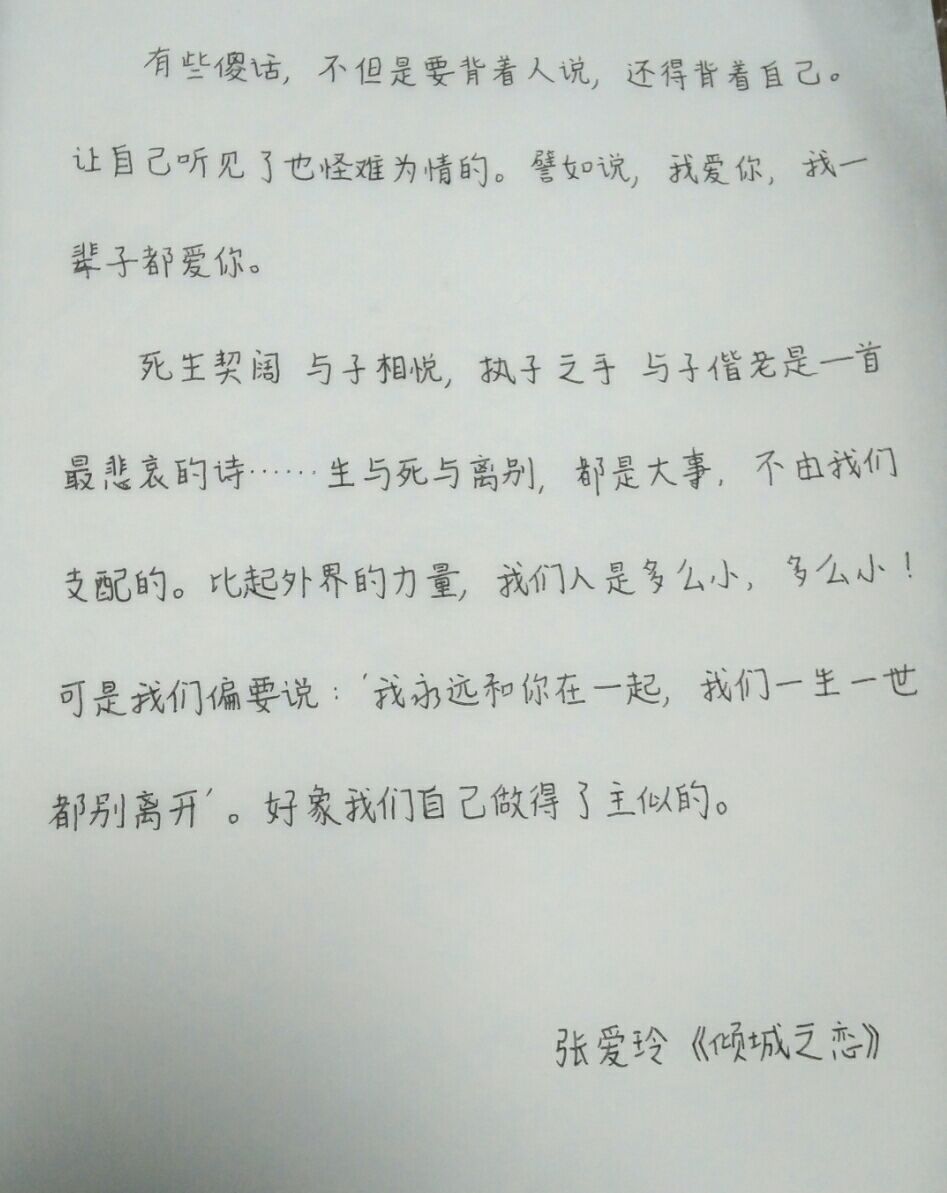 有些傻话，不但是要背着人说，还得背着自己。
让自己听见了也怪难为情的。譬如说，我爱你，我一
辈子都爱你。
死生契阔 与子相悦，执子之手 与子偕老是一首
最悲哀的诗……生与死与离别，都是大事，不由我们
支配的。比起外界的力量，我们人是多么小，多么小！
可是我们偏要说：‘我永远和你在一起，我们一生一世
都别离开’。好象我们自己做得了主似的。
张爱玲《倾城之恋》